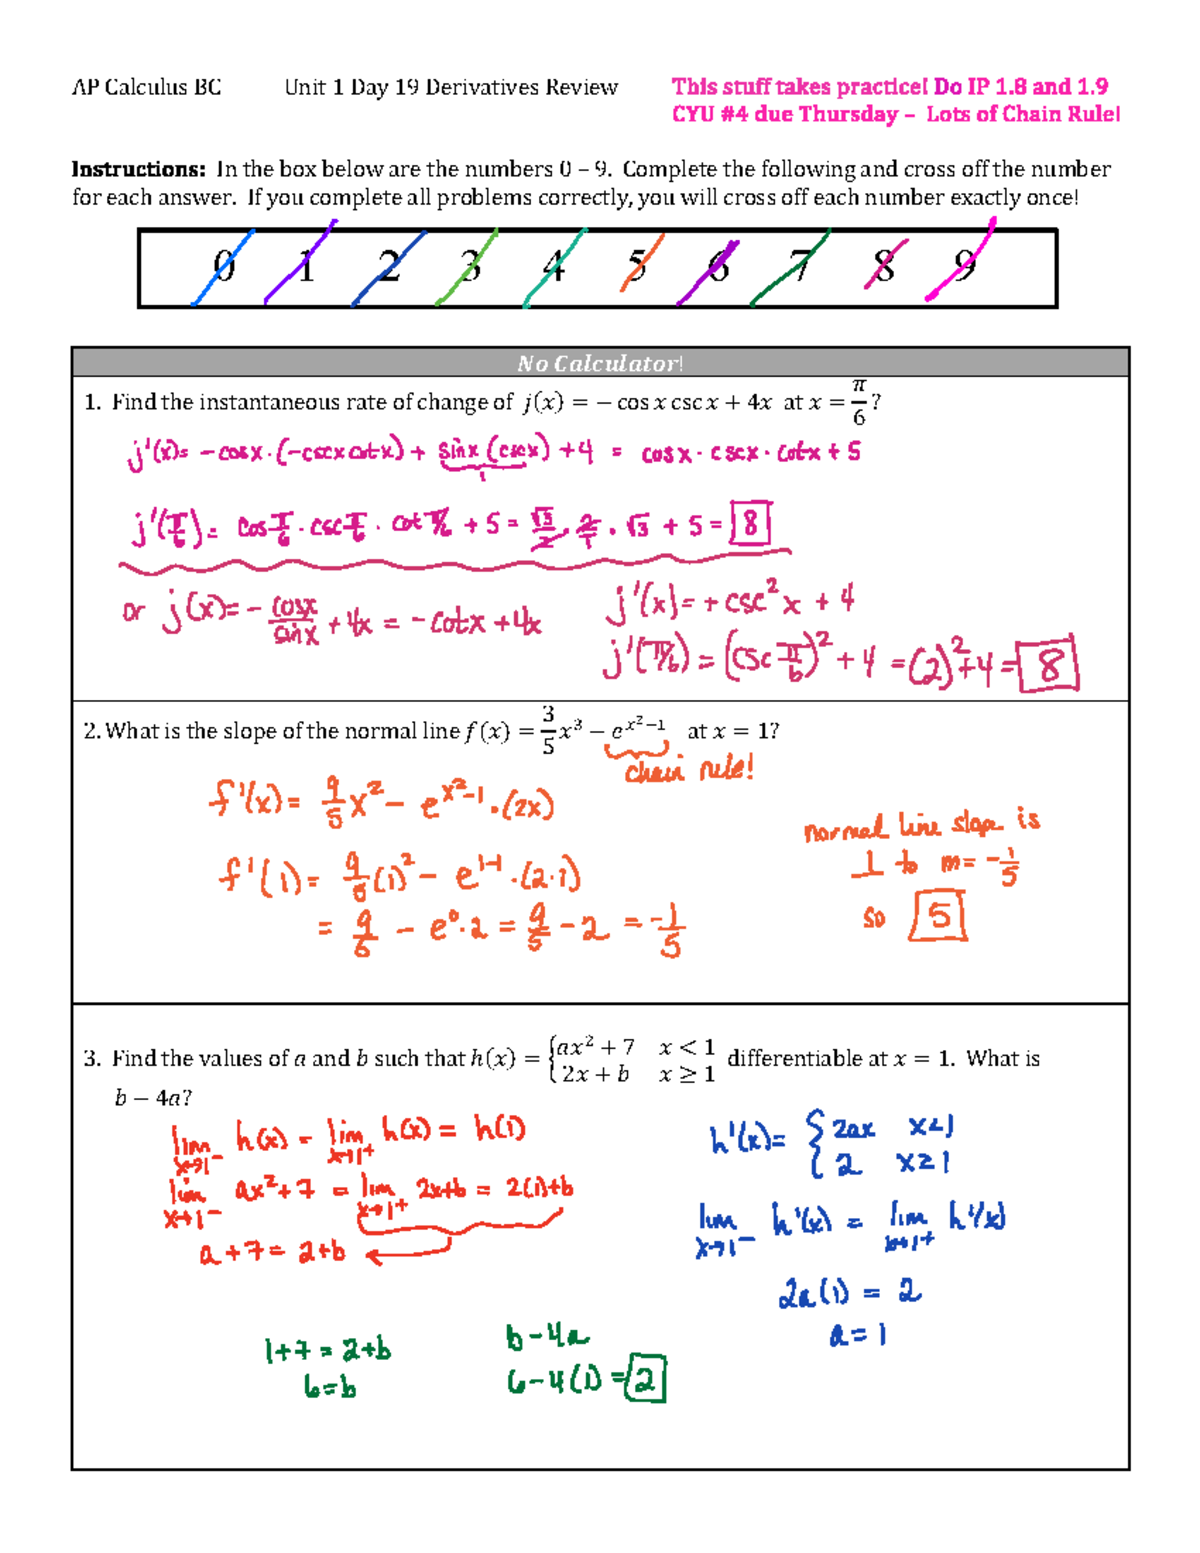 AP Calculus BC Unit 1 Day 19 Derivatives Review This stuff takes practice! Do IP 1.8 and 1.9
CYU #4 due Thursday – Lots of Chain Rule!
Instructions: In the box below are the numbers 0 – 9. Complete the following and cross off the number
for each answer. If you complete all problems correctly, you will cross off each number exactly once!
0 1 2 3 4 5 6 7 8 9
No Calculator!
1. Find the instantaneous rate of change of j(x) = − cos x csc x + 4x at x = π/6 ?
j'(x)= -cosx·(-cscxcotx) + sinx(cscx) +4 = cosx·cscx·cotx+5
1
j'(π/6)= cos π/6 · csc π/6 · cot π/6 + 5 = √3/2 · 2/1 · √3 + 5 = 8
or j(x)= - cosx/sinx + 4x = -cotx+4x
j'(x)= +csc²x + 4
j'(π/6) = (csc π/6)² + 4 = (2)²+4 = 8
2. What is the slope of the normal line f(x) = 3/5 x³ − e^(x²−1) at x = 1?
chain rule!
f'(x)= 9/5 x² - e^(x²-1) · (2x)
f'(1)= 9/5 (1)² - e^(1-1) · (2·1)
= 9/5 - e⁰·2 = 9/5 - 2 = -1/5
normal line slope is
⊥ to m= -1/5
so 5
3. Find the values of a and b such that h(x) = { ax² + 7 x < 1
2x + b x ≥ 1 differentiable at x = 1. What is
b − 4a?
lim x→1⁻ h(x) = lim x→1⁺ h(x) = h(1)
lim x→1⁻ ax²+7 = lim x→1⁺ 2x+b = 2(1)+b
a+7= 2+b ←
1+7 = 2+b
6=b
b-4a
6-4(1) = 2
h'(x)= { 2ax x<1
2 x≥1
lim x→1⁻ h'(x) = lim x→1⁺ h'(x)
2a(1) = 2
a=1